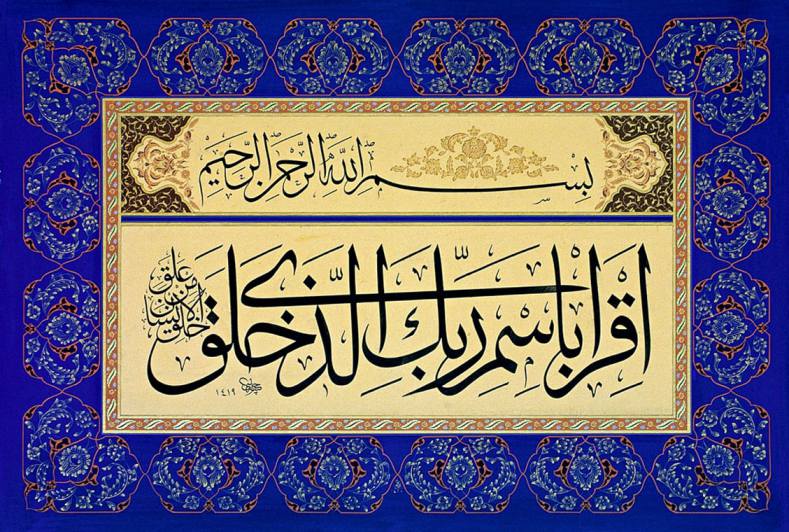 بِسْمِ اللّٰهِ الرَّحْمٰنِ الرَّحِيمِ
اِقْرَأْ بِاسْمِ رَبِّكَ الَّذِي خَلَقَ
خَلَقَ الْاِنْسَانَ مِنْ عَلَقٍ
١٤١٩